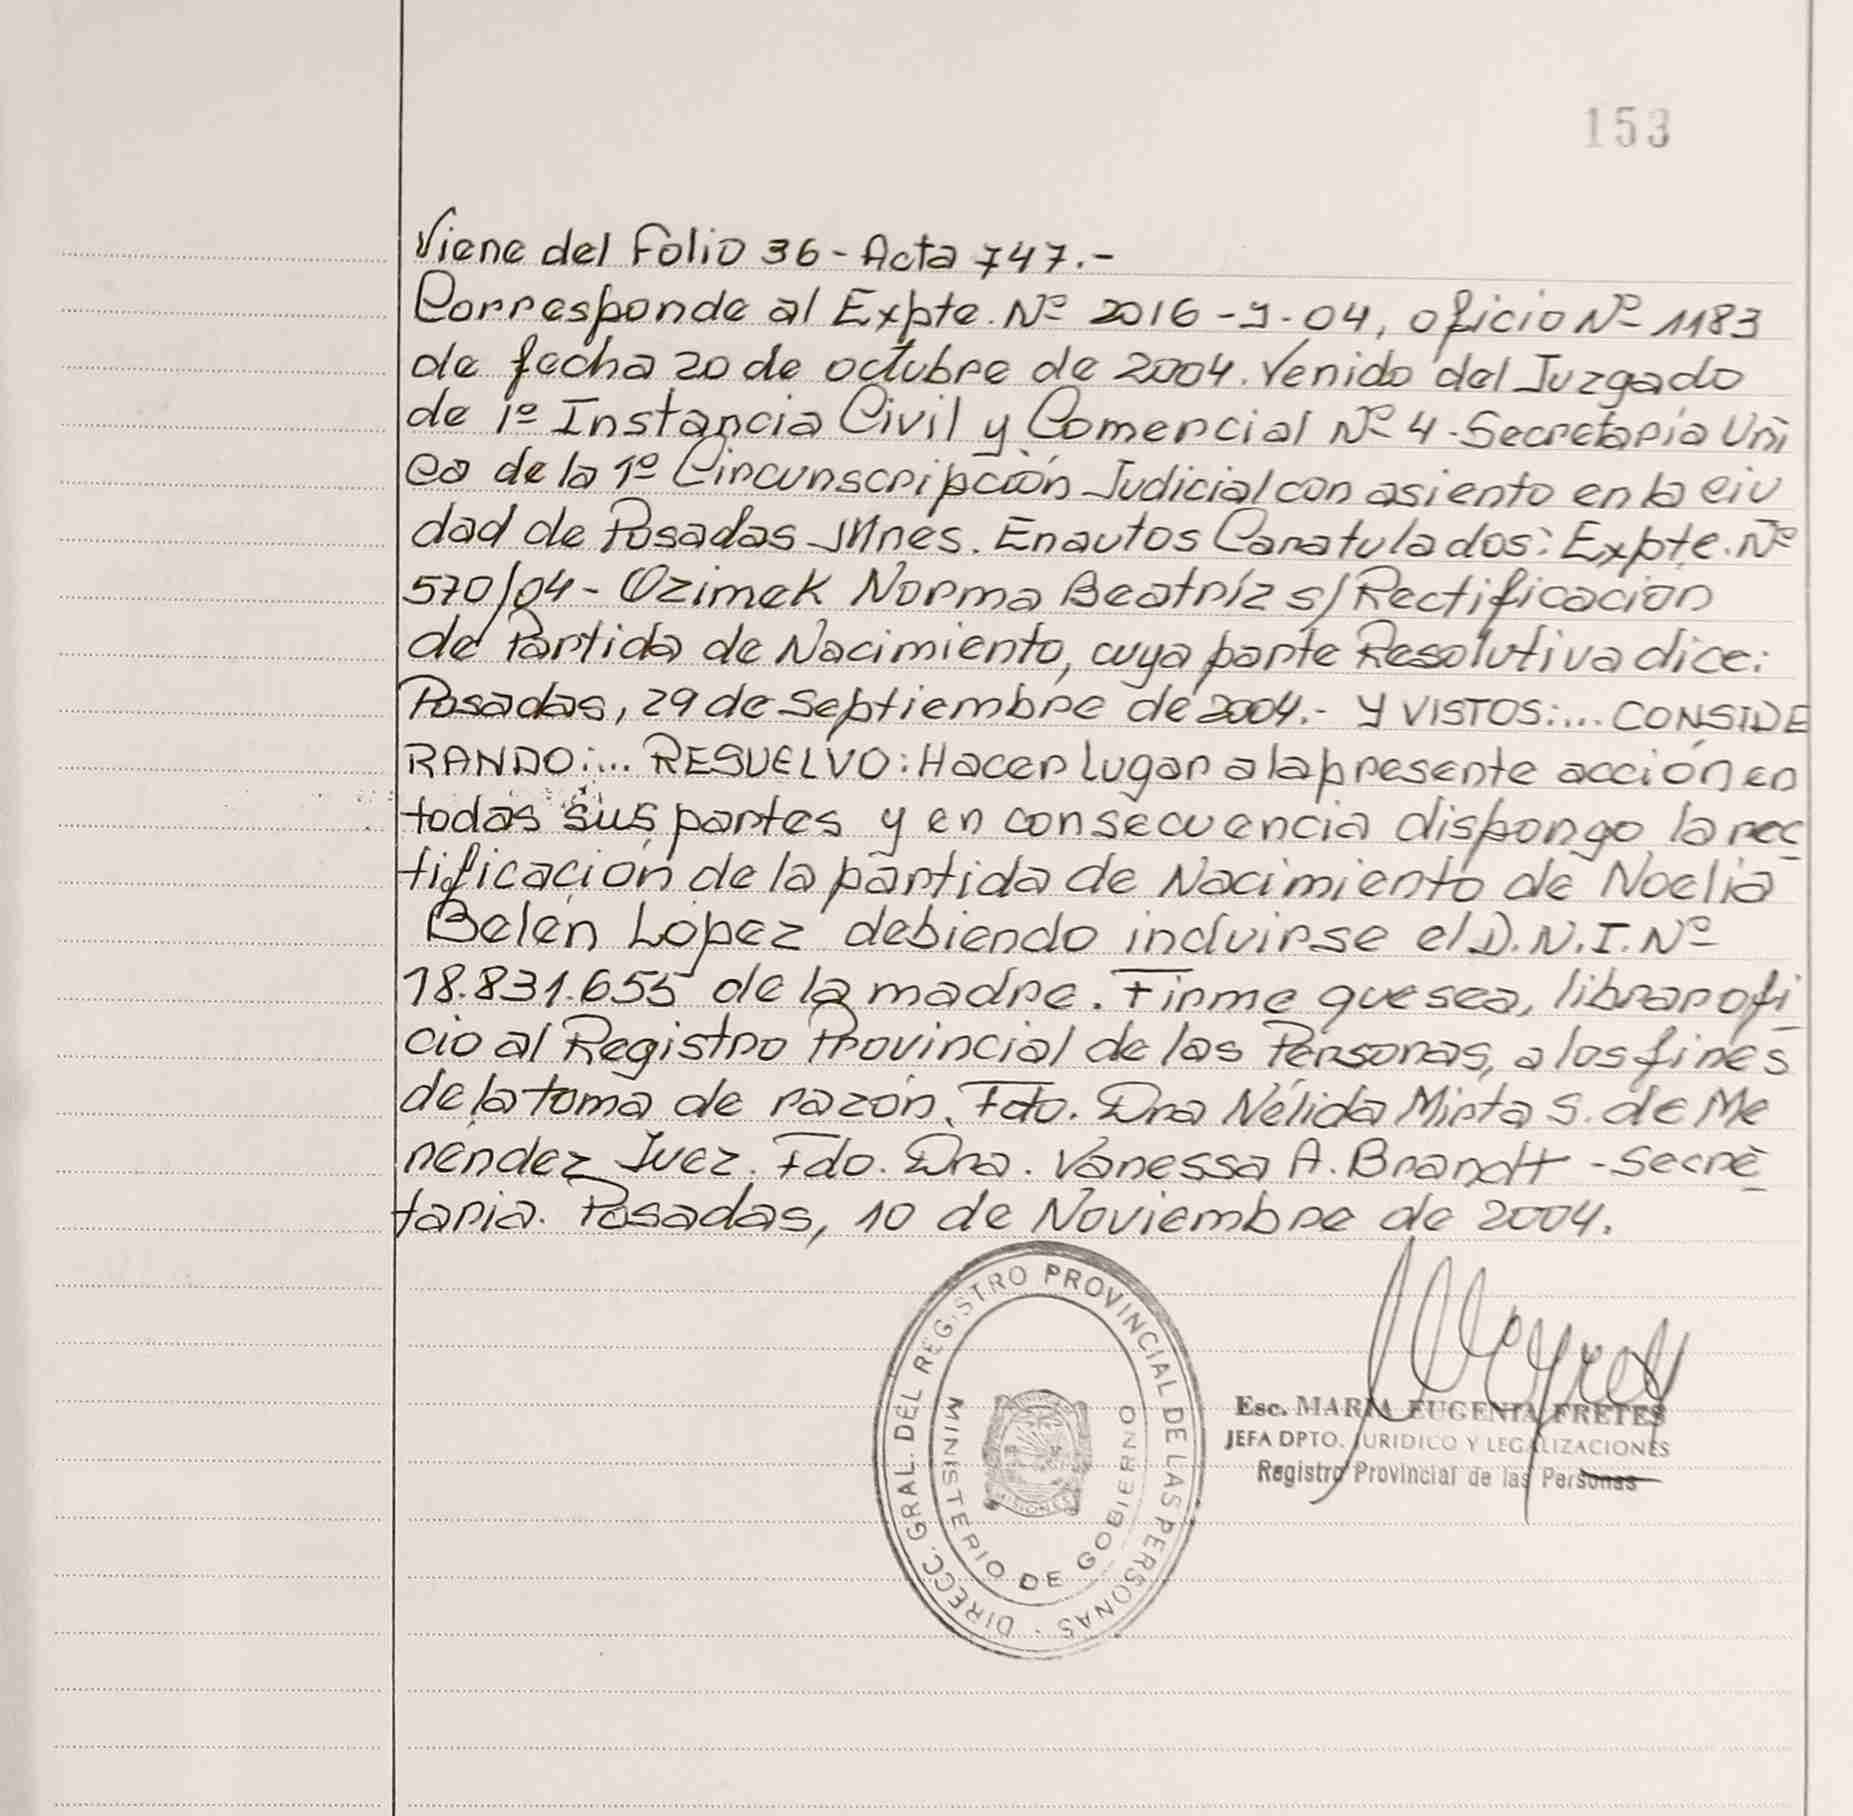 153
Viene del Folio 36 - Acta 747.-
Corresponde al Expte. Nº 2016 - J - 04, oficio Nº 1183
de fecha 20 de octubre de 2004. Venido del Juzgado
de 1º Instancia Civil y Comercial Nº 4 - Secretaría Uni
ca de la 1º Circunscripción Judicial con asiento en la ciu
dad de Posadas Mnes. En autos Caratulados: Expte. Nº
570/04 - Ozimek Norma Beatríz s/Rectificacion
de Partida de Nacimiento, cuya parte Resolutiva dice:
Posadas, 29 de Septiembre de 2004.- Y VISTOS:... CONSIDE
RANDO:... RESUELVO: Hacer lugar a la presente acción en
todas sus partes y en consecuencia dispongo la rec
tificación de la partida de Nacimiento de Noelia
Belén López debiendo incluirse el D.N.I. Nº
18.831.655 de la madre. Firme que sea, librar ofi
cio al Registro Provincial de las Personas, a los fines
de la toma de razón. Fdo. Dra Nélida Mirta S. de Me
néndez Juez. Fdo. Dra. Vanessa A. Brandt - Secre
taria. Posadas, 10 de Noviembre de 2004.
DIRECC. GRAL. DEL REGISTRO PROVINCIAL DE LAS PERSONAS
MINISTERIO DE GOBIERNO
MISIONES
Esc. MARIA EUGENIA FRETES
JEFA DPTO. JURIDICO Y LEGALIZACIONES
Registro Provincial de las Personas